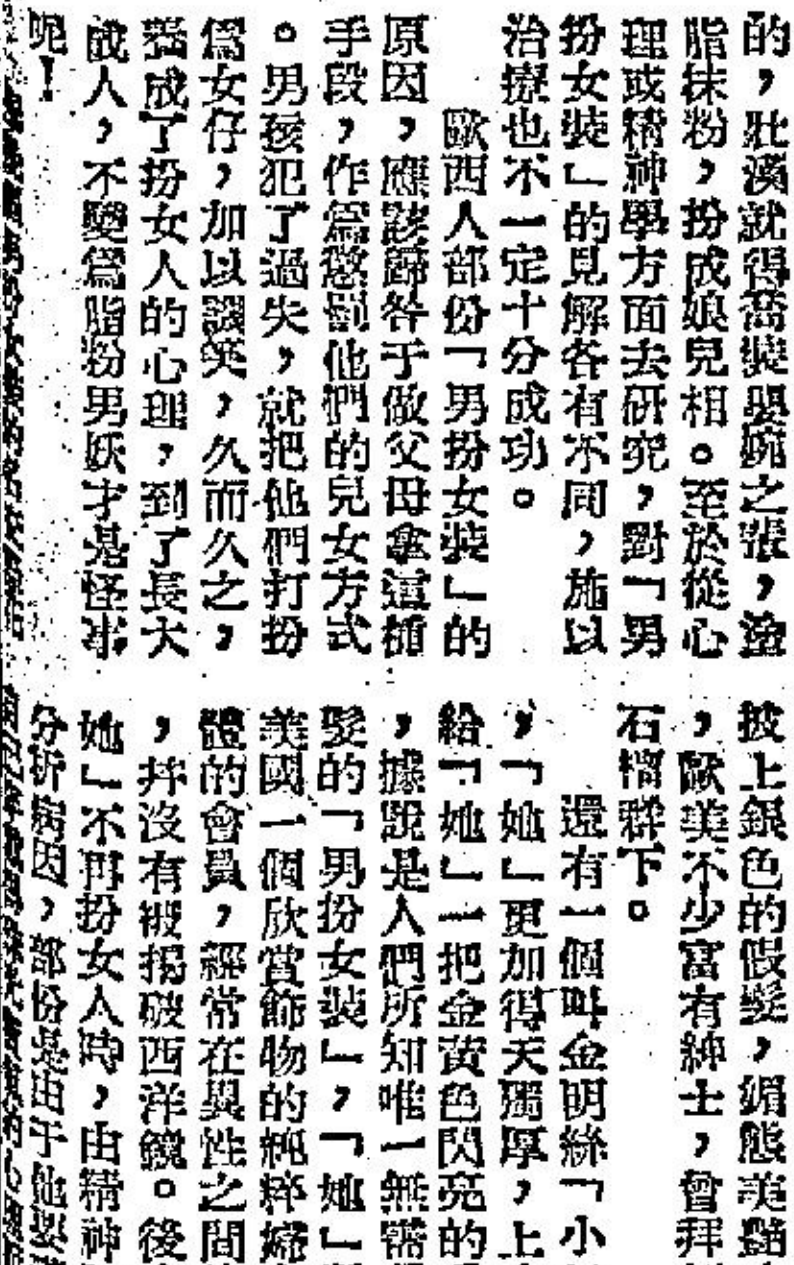 的，壯漢就得喬裝婴婉之張，塗
脂抹粉，扮成娘兒相。至於從心
理或精神學方面去研究，對「男
扮女裝」的見解各有不同，施以
治療也不一定十分成功。
歐西人部份「男扮女裝」的
原因，應該歸咎于做父母拿這種
手段，作爲懲罰他們的兒女方式
。男孩犯了過失，就把他們打扮
爲女仔，加以譏笑，久而久之，
養成了扮女人的心理，到了長大
成人，不變爲脂粉男妖才是怪事
呢！
披上銀色的假髮，媚態美豔
，歐美不少富有紳士，曾拜
石榴群下。
還有一個叫金明絲「小
，「她」更加得天獨厚，上
給「她」一把金黃色閃亮的
，據說是人們所知唯一無需
髮的「男扮女裝」，「她」
美國一個欣賞飾物的純粹婦
體的會員，經常在異性之間
，幷沒有被揭破西洋鏡。後
她」不再扮女人時，由精神
分析病因，部份是由于他